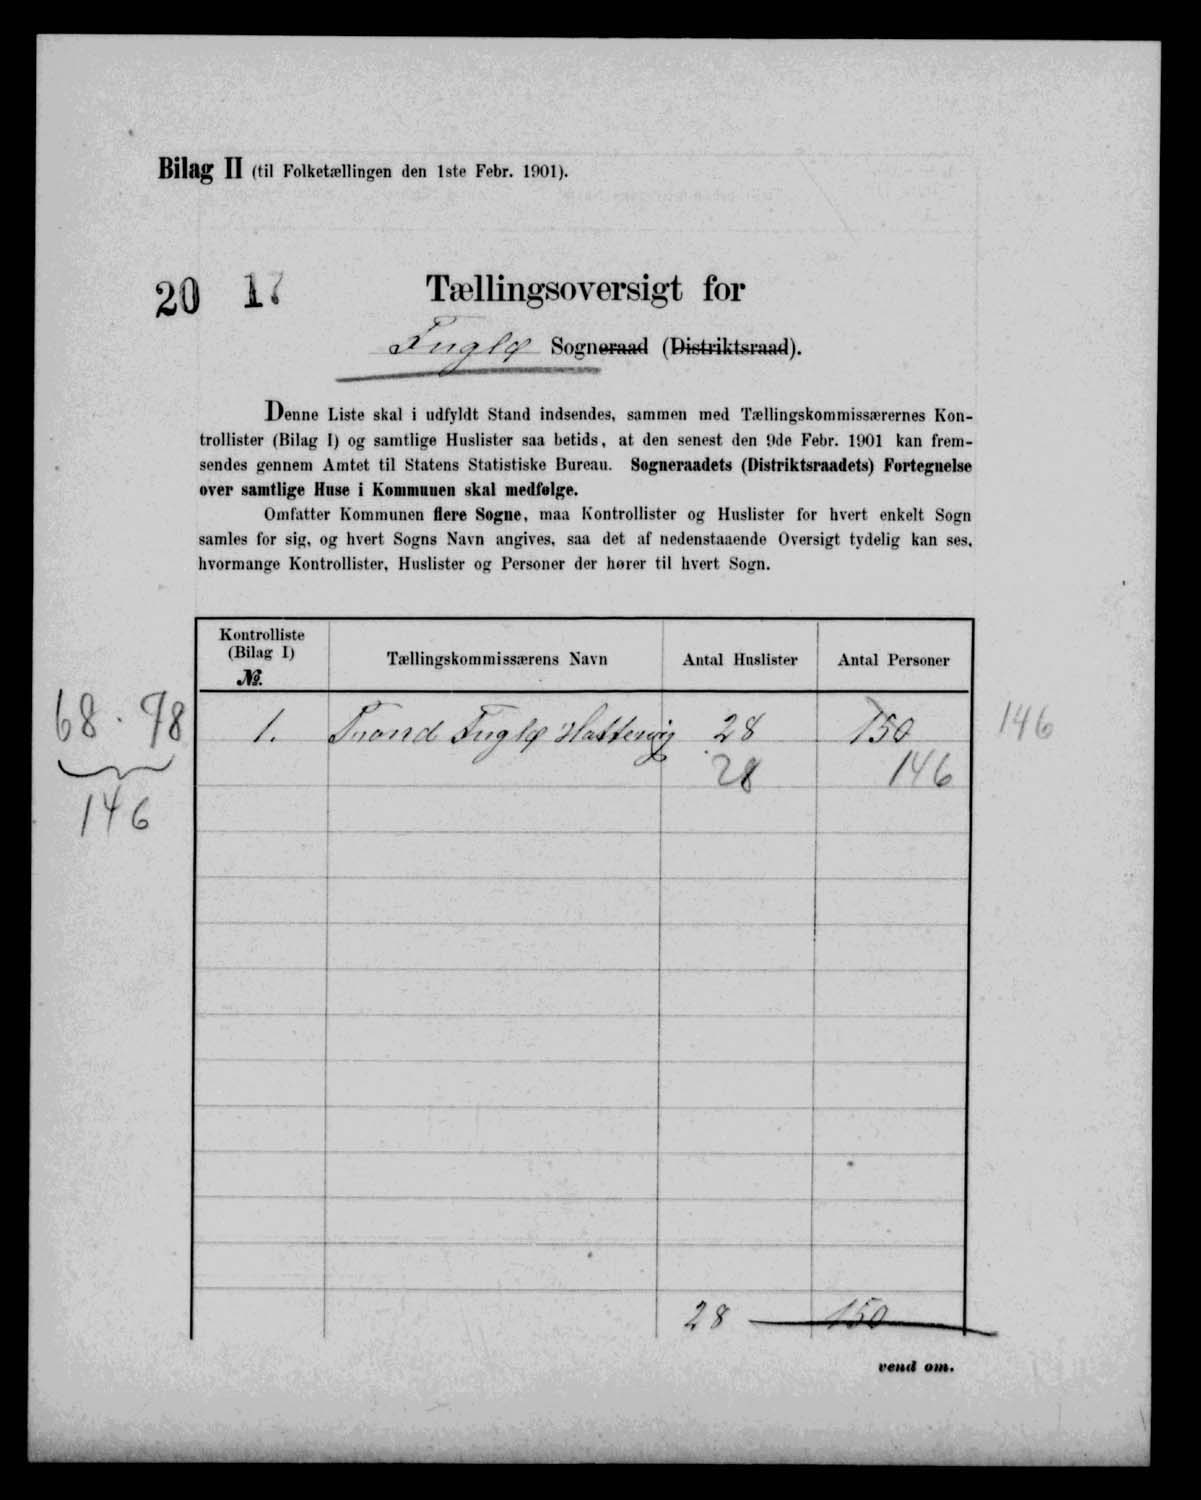 Bilag II (til Folketællingen den 1ste Febr. 1901).
20 17
Tællingsoversigt for
Fuglø Sogneraad (Distriktsraad).
Denne Liste skal i udfyldt Stand indsendes, sammen med Tællingskommissærernes Kon-
trollister (Bilag I) og samtlige Huslister saa betids, at den senest den 9de Febr. 1901 kan frem-
sendes gennem Amtet til Statens Statistiske Bureau. Sogneraadets (Distriktsraadets) Fortegnelse
over samtlige Huse i Kommunen skal medfølge.
Omfatter Kommunen flere Sogne, maa Kontrollister og Huslister for hvert enkelt Sogn
samles for sig, og hvert Sogns Navn angives, saa det af nedenstaaende Oversigt tydelig kan ses,
hvormange Kontrollister, Huslister og Personer der hører til hvert Sogn.
Kontrolliste
(Bilag I)
No.
Tællingskommissærens Navn
Antal Huslister
Antal Personer
68 . 78
1. Trond Fuglø Hattervig 28 150 146
28 146
146
28 150
vend om.